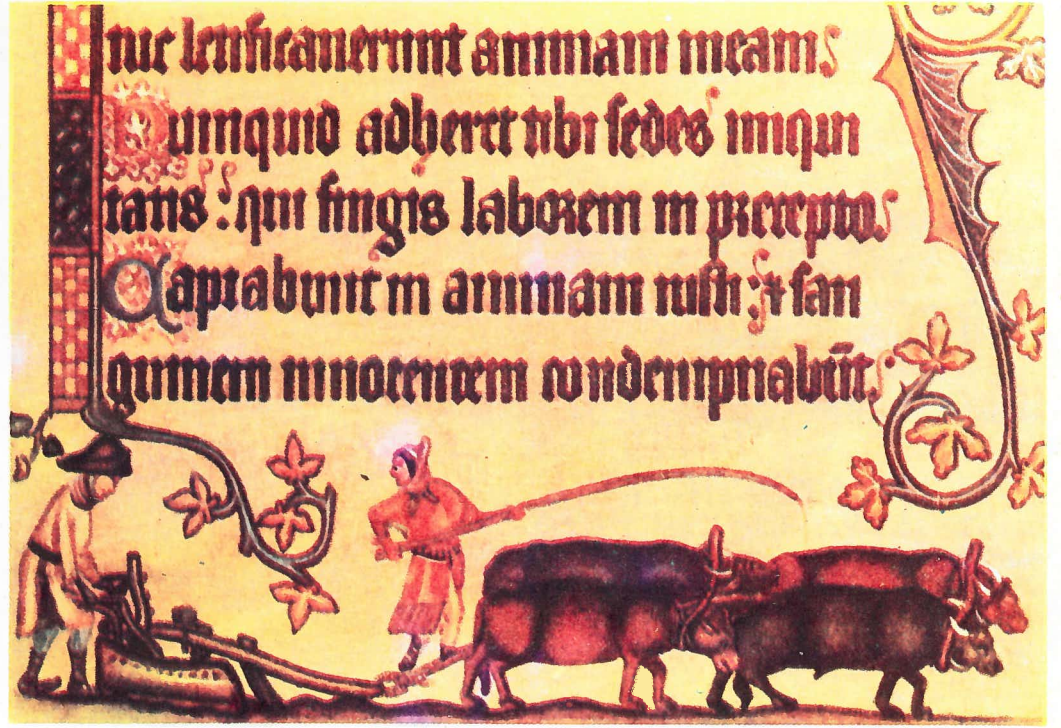 tue letificauerunt animam meam
Numquid adheret tibi sedes iniqui
tatis: qui fingis laborem in precepto
Captabunt in animam iusti: & san
guinem innocentem condempnabūt